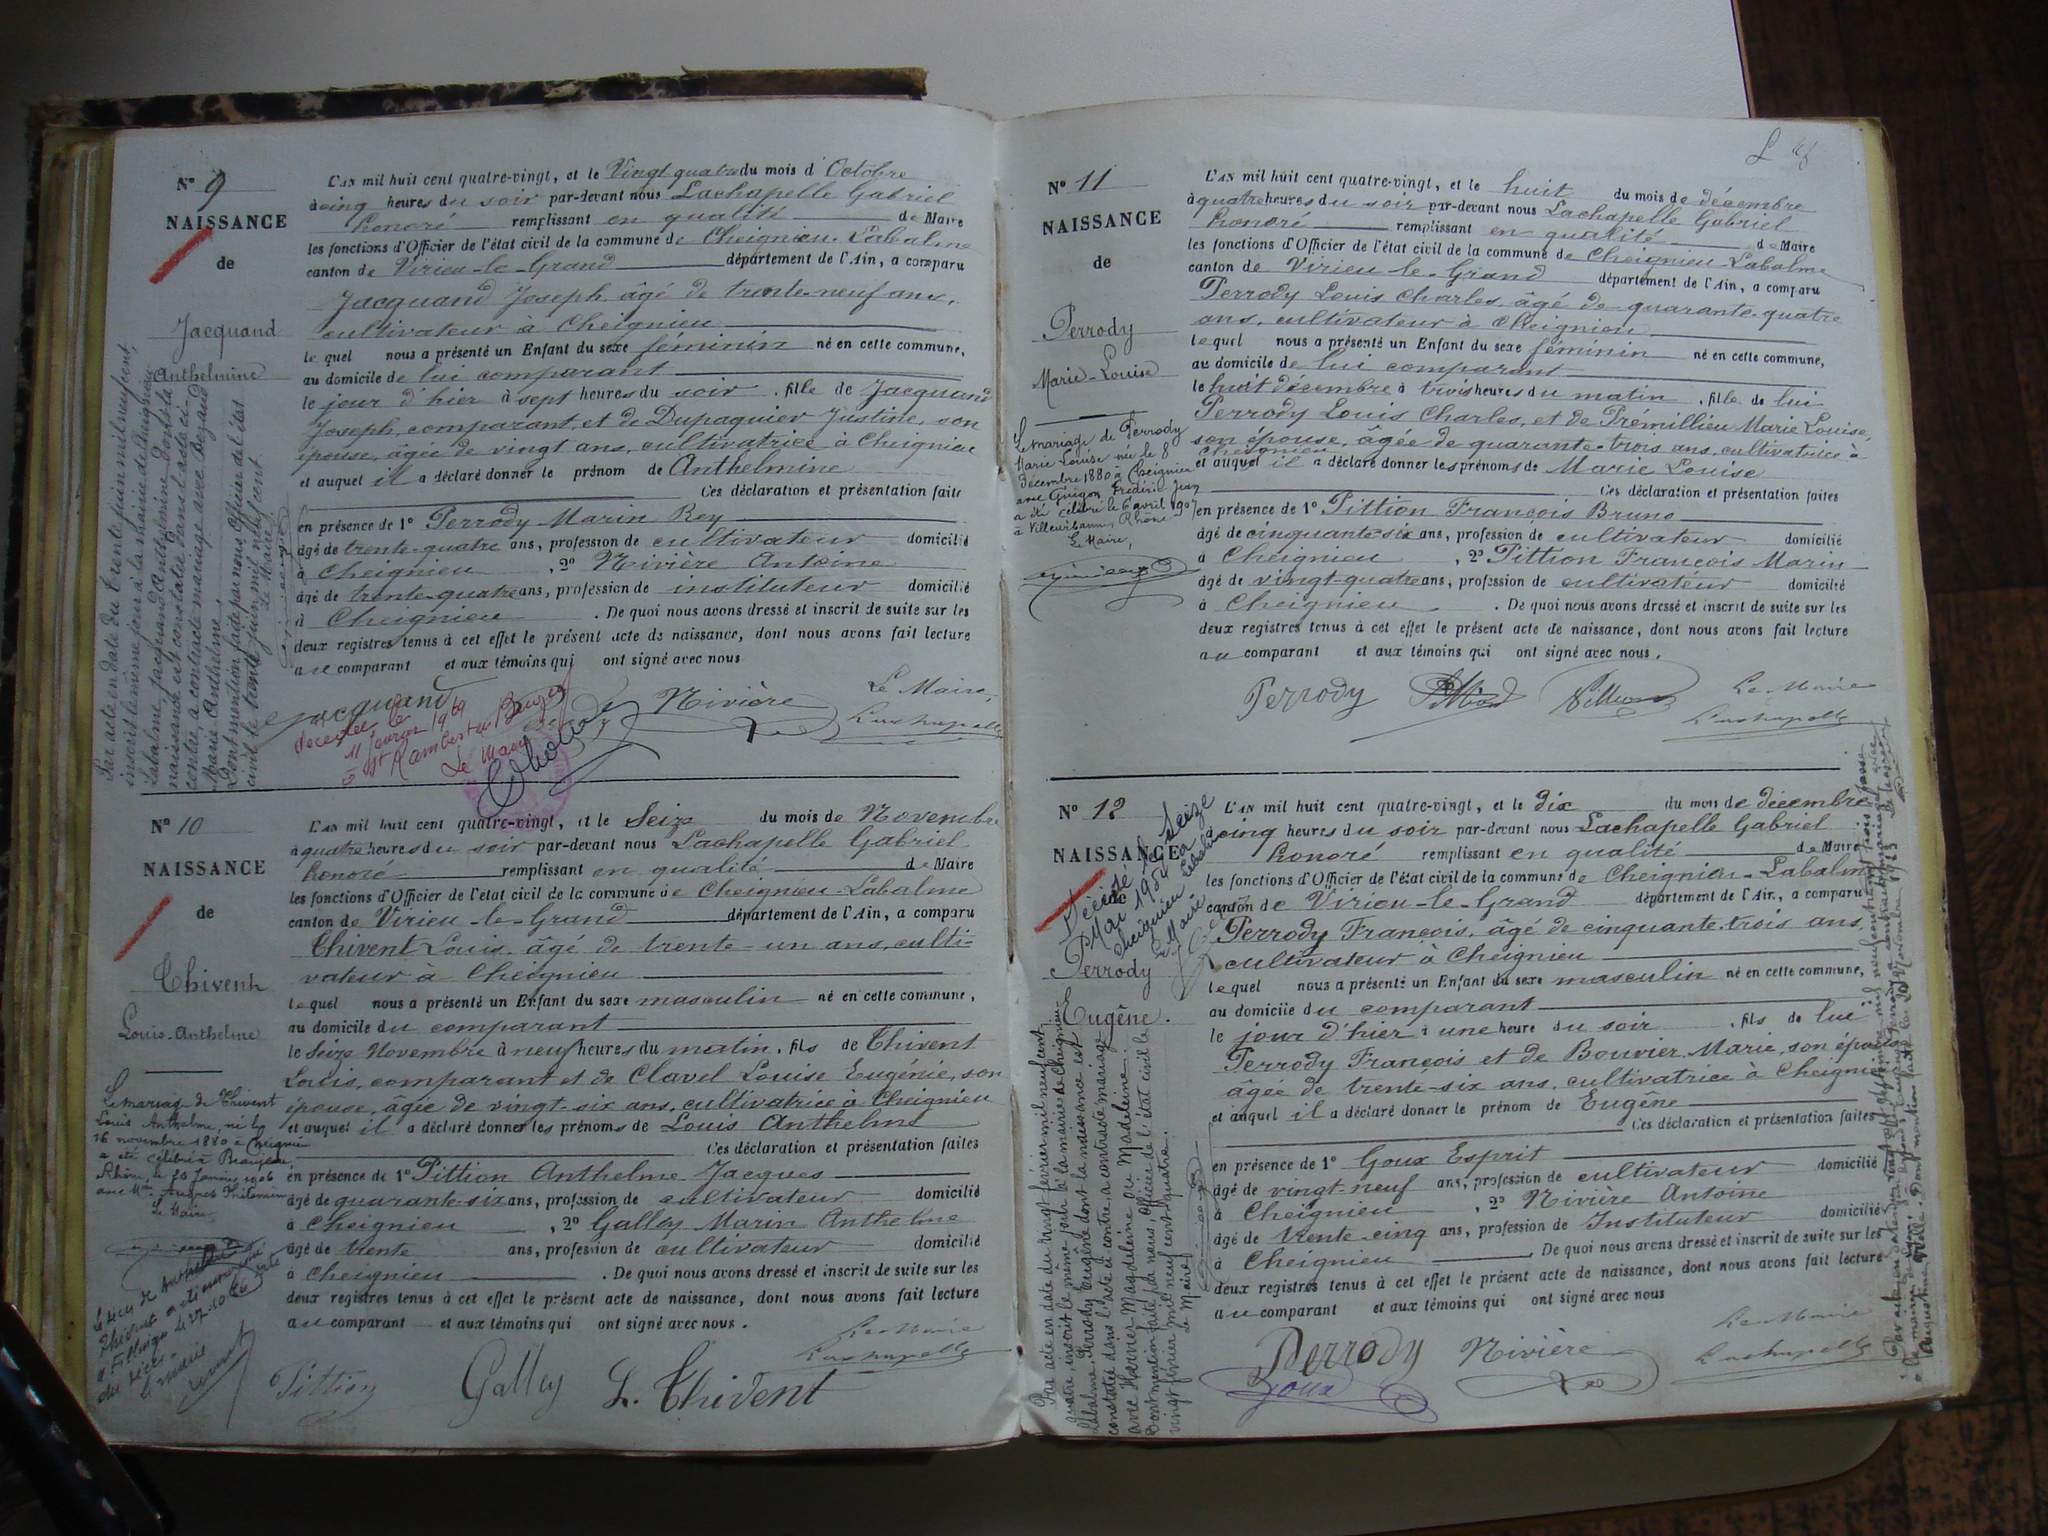 N° 9
NAISSANCE
de
Jacquand
Anthelmine
L'AN mil huit cent quatre-vingt, et le Vingt quatre du mois d'Octobre
à cinq heures du soir par-devant nous Lachapelle Gabriel
honoré remplissant en qualité de Maire
les fonctions d'Officier de l'état civil de la commune de Cheignieu-Labalme
canton de Virieu-le-Grand département de l'Ain, a comparu
Jacquand Joseph, âgé de trente-neuf ans,
cultivateur à Cheignieu
lequel nous a présenté un Enfant du sexe féminin né en cette commune,
au domicile de lui comparant
le jour d'hier à sept heures du soir, fille de Jacquand
Joseph, comparant, et de Dupaquier Justine, son
épouse, âgée de vingt ans, cultivatrice à Cheignieu
et auquel il a déclaré donner le prénom de Anthelmine
Ces déclaration et présentation faites
en présence de 1° Perrody Marin Rey
âgé de trente-quatre ans, profession de cultivateur domicilié
à Cheignieu, 2° Rivière Antoine
âgé de trente-quatre ans, profession de instituteur domicilié
à Cheignieu. De quoi nous avons dressé et inscrit de suite sur les
deux registres tenus à cet effet le présent acte de naissance, dont nous avons fait lecture
au comparant et aux témoins qui ont signé avec nous
Jacquand Rivière Le Maire,
Lachapelle
décédée le
11 février 1969
à St Rambert en Bugey
Le Maire
Par acte en date du trente juin mil neuf cent,
inscrit le même jour à la mairie de Cheignieu
Labalme, Jacquand Anthelmine dont la
naissance est constatée dans l'acte ci-
contre, a contracté mariage avec Bozand
Marie Anthelme.
Dont mention faite par nous Officier de l'état
civil le trente juin mil neuf cent
Le Maire,
N° 10
NAISSANCE
de
Thivent
Louis-Anthelme
L'AN mil huit cent quatre-vingt, et le Seize du mois de Novembre
à quatre heures du soir par-devant nous Lachapelle Gabriel
honoré remplissant en qualité de Maire
les fonctions d'Officier de l'état civil de la commune de Cheignieu-Labalme
canton de Virieu-le-Grand département de l'Ain, a comparu
Thivent Louis, âgé de trente-un ans, culti-
vateur à Cheignieu
lequel nous a présenté un Enfant du sexe masculin né en cette commune,
au domicile du comparant
le Seize Novembre à neuf heures du matin, fils de Thivent
Louis, comparant et de Clavel Louise Eugénie, son
épouse, âgée de vingt-six ans, cultivatrice à Cheignieu
et auquel il a déclaré donner les prénoms de Louis Anthelme
Ces déclaration et présentation faites
en présence de 1° Pittion Anthelme Jacques
âgé de quarante-six ans, profession de cultivateur domicilié
à Cheignieu, 2° Galley Marin Anthelme
âgé de trente ans, profession de cultivateur domicilié
à Cheignieu. De quoi nous avons dressé et inscrit de suite sur les
deux registres tenus à cet effet le présent acte de naissance, dont nous avons fait lecture
au comparant et aux témoins qui ont signé avec nous.
Le Maire
Lachapelle
Pittion Galley L. Thivent
Le mariage de Thivent
Louis Anthelme, né le
16 novembre 1880 à Cheignieu
a été célébré à Beaujeu,
Rhône, le 20 Janvier 1906
avec
Le Maire
Le décès de Anthelme
Thivent
à le 27-10
Le Maire
N° 11
NAISSANCE
de
Perrody
Marie-Louise
L'AN mil huit cent quatre-vingt, et le huit du mois de décembre
à quatre heures du soir par-devant nous Lachapelle Gabriel
honoré remplissant en qualité de Maire
les fonctions d'Officier de l'état civil de la commune de Cheignieu-Labalme
canton de Virieu-le-Grand département de l'Ain, a comparu
Perrody Louis Charles, âgé de quarante-quatre
ans, cultivateur à Cheignieu
lequel nous a présenté un Enfant du sexe féminin né en cette commune,
au domicile de lui comparant
le huit décembre à trois heures du matin, fille de lui
Perrody Louis Charles, et de Trémillieu Marie Louise,
son épouse, âgée de quarante-trois ans, cultivatrice à
Cheignieu
et auquel il a déclaré donner les prénoms de Marie Louise
Ces déclaration et présentation faites
en présence de 1° Pittion François Bruno
âgé de cinquante-six ans, profession de cultivateur domicilié
à Cheignieu, 2° Pittion François Marin
âgé de vingt-quatre ans, profession de cultivateur domicilié
à Cheignieu. De quoi nous avons dressé et inscrit de suite sur les
deux registres tenus à cet effet le présent acte de naissance, dont nous avons fait lecture
au comparant et aux témoins qui ont signé avec nous.
Perrody Pittion Pittion Le Maire
Lachapelle
Le mariage de Perrody
Marie Louise née le 8
décembre 1880 à Cheignieu
avec Guigon Frédéric Jean
a été célébré le 6 avril 1907
à Villeurbanne, Rhône
Le Maire,
N° 12
NAISSANCE
de
Perrody
Eugène.
Décédé le seize
Mai 1954 à
Cheignieu Labalme
Le Maire
L'AN mil huit cent quatre-vingt, et le dix du mois de décembre
à cinq heures du soir par-devant nous Lachapelle Gabriel
honoré remplissant en qualité de Maire
les fonctions d'Officier de l'état civil de la commune de Cheignieu-Labalme
canton de Virieu-le-Grand département de l'Ain, a comparu
Perrody François, âgé de cinquante-trois ans,
cultivateur à Cheignieu
lequel nous a présenté un Enfant du sexe masculin né en cette commune,
au domicile du comparant
le jour d'hier à une heure du soir, fils de lui
Perrody François et de Bouvier Marie, son épouse
âgée de trente-six ans, cultivatrice à Cheignieu
et auquel il a déclaré donner le prénom de Eugène
Ces déclaration et présentation faites
en présence de 1° Goux Esprit
âgé de vingt-neuf ans, profession de cultivateur domicilié
à Cheignieu, 2° Rivière Antoine
âgé de trente-cinq ans, profession de Instituteur domicilié
à Cheignieu. De quoi nous avons dressé et inscrit de suite sur les
deux registres tenus à cet effet le présent acte de naissance, dont nous avons fait lecture
au comparant et aux témoins qui ont signé avec nous
Le Maire
Perrody Rivière Lachapelle
Goux
Par acte en date du vingt février mil neuf cent
quatre inscrit le même jour à la mairie de Cheignieu
Labalme, Perrody Eugène dont la naissance est
constatée dans l'acte ci-contre, a contracté mariage
avec Marie Magdeleine ou Madeleine.
Dont mention faite par nous, Officier de l'état civil le
vingt février mil neuf cent quatre.
Le Maire